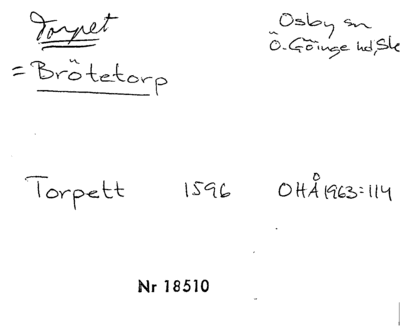 Torpet
= Brötetorp
Osby sn
Ö. Göinge hd, Sk
Torpett 1596 OHÅ 1963:114
Nr 18510